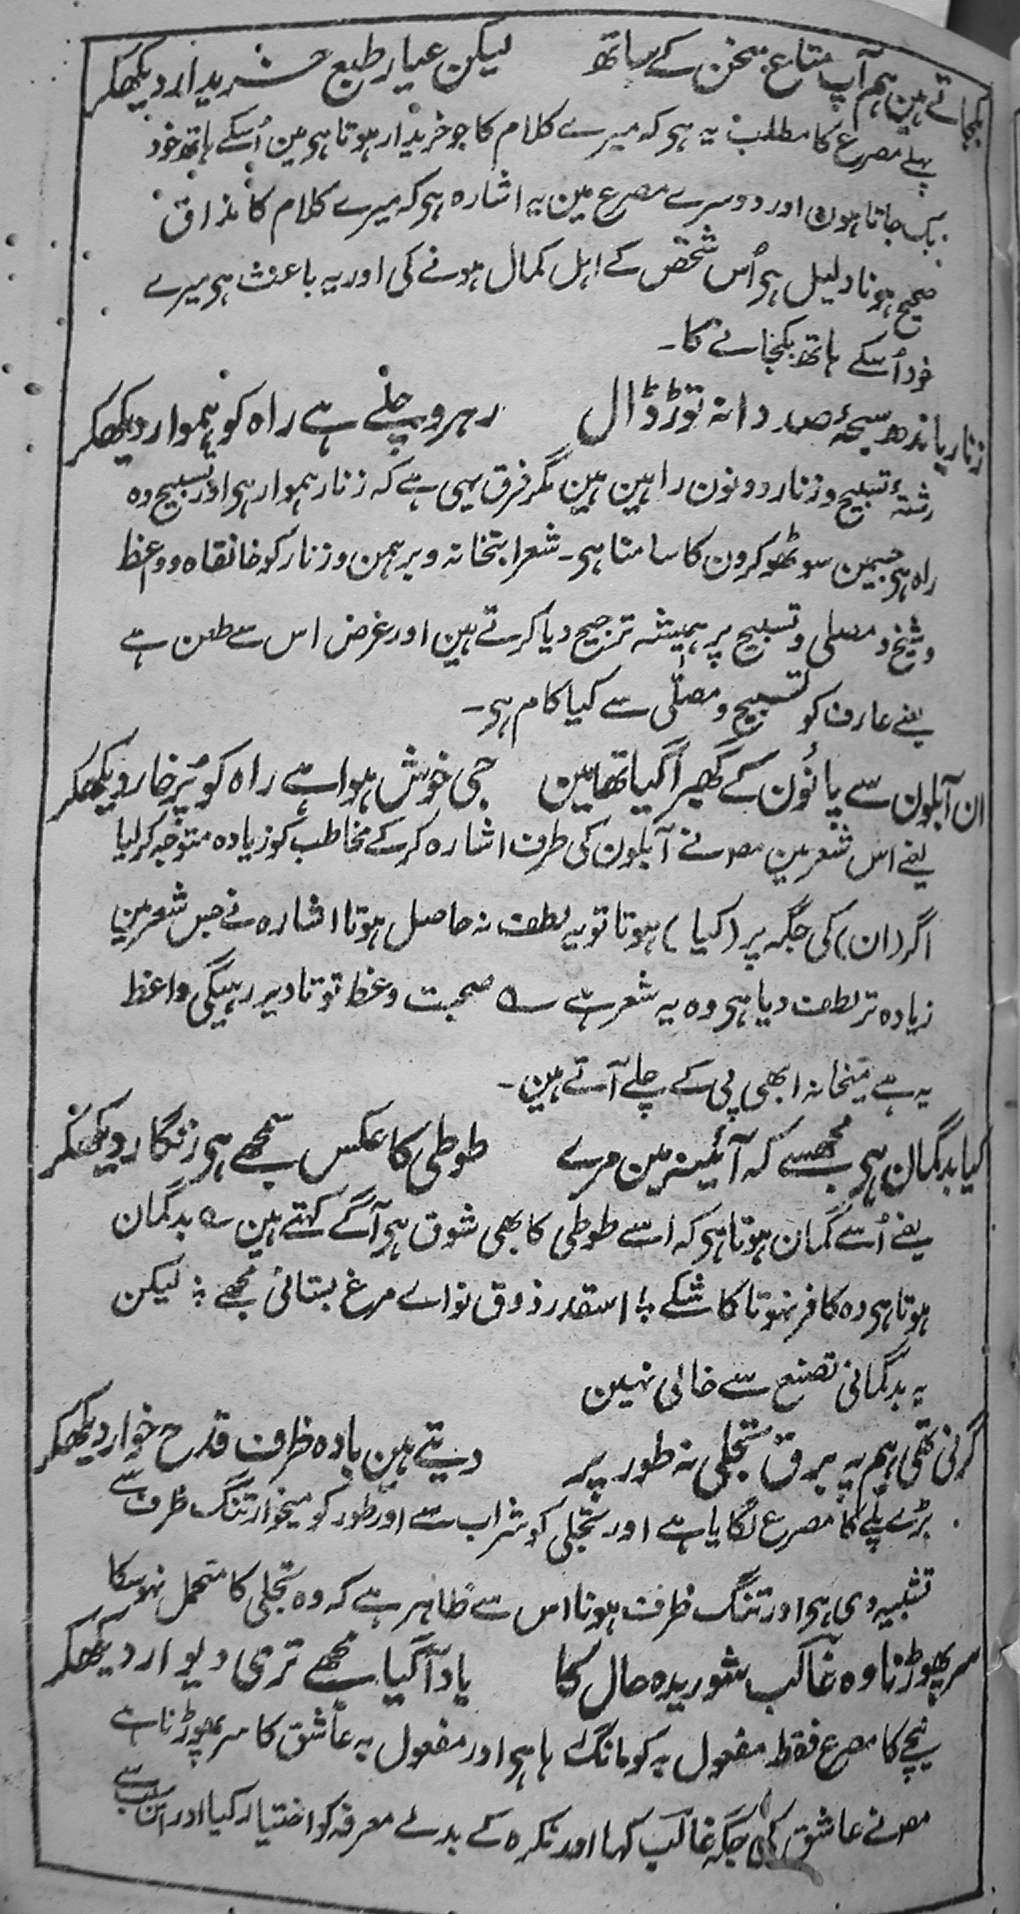 بکجاتے ہین ہم آپ متاع سخن کے ساتھ لیکن عیار طبع خریدار دیکھکر
پہلے مصرع کا مطلب یہ ہی کہ میرے کلام کا جو خریدار ہوتا ہی مین اُسکے ہاتھ خود
بک جاتا ہون اور دوسرے مصرع مین یہ اشارہ ہی کہ میرے کلام کا مذاق
صحیح ہونا دلیل ہی اُس شخص کے اہل کمال ہونے کی اور یہ باعث ہی میرے
خود اُسکے ہاتھ بکجانے کا۔
زنار باندھ سبحۂ صد دانہ توڑ ڈال رہرو چلے ہے راہ کو ہموار دیکھکر
رشتۂ تسبیح و زنار دونون راہین ہین مگر فرق یہی ہے کہ زنار ہموار ہی اور تسبیح وہ
راہ ہی جسمین سو ٹھوکرون کا سامنا ہی۔ شعرا بتخانہ و برہمن و زنار کو خانقاہ و واعظ
و شیخ و مصلی و تسبیح پر ہمیشہ ترجیح دیا کرتے ہین اور غرض اس سے طعن ہے
یعنے عارف کو تسبیح و مصلّی سے کیا کام ہی۔
ان آبلون سے پانُون کے گھبرا گیا تھا مین جی خوش ہوا ہے راہ کو پُر خار دیکھکر
یعنے اس شعر مین مصنے آبلون کی طرف اشارہ کر کے مخاطب کو زیادہ متوجہ کر لیا
اگر (ان) کی جگہ پر (کیا) ہوتا تو یہ لطف نہ حاصل ہوتا اشارہ نے جس شعر مین
زیادہ تر لطف دیا ہی وہ یہ شعر ہے ؎ صحبت وعظ تو تا دیر رہیگی واعظ
یہ ہے میخانہ ابھی پی کے چلے آتے ہین۔
کیا بدگمان ہی مجھسے کہ آئینہ مین مرے طوطی کا عکس سمجھے ہی زنگار دیکھکر
یعنے اُسے گمان ہوتا ہی کہ اسے طوطی کا بھی شوق ہی آگے کہتے ہین ؎ بدگمان
ہوتا ہی وہ کافر نہوتا کاشکے ؛ اسقدر ذوق نواے مرغ بستانی مجھے ؛ لیکن
یہ بدگمانی تصنع سے خالی نہین
گرنی تھی ہم پہ برق تجلی نہ طور پر دیتے ہین بادہ ظرف قدح خوار دیکھکر
بڑے پلّے کا مصرع لگایا ہے اور تجلی کو شراب سے اور طور کو میخوار تنگ ظرف سے
تشبیہ دی ہی اور تنگ ظرف ہونا اس سے ظاہر ہے کہ وہ تجلی کا متحمل نہوسکا
سر پھوڑنا وہ غالب شوریدہ حال کا یاد آگیا مجھے تری دیوار دیکھکر
نیچے کا مصرع فقط مفعول بہ کو مانگ رہا ہی اور مفعول بہ عاشق کا سر پھوڑنا ہے
مصنے عاشق کی جگہ غالب کہا اور نکرہ کے بدلے معرفہ کو اختیار کیا اور اس سبب سے